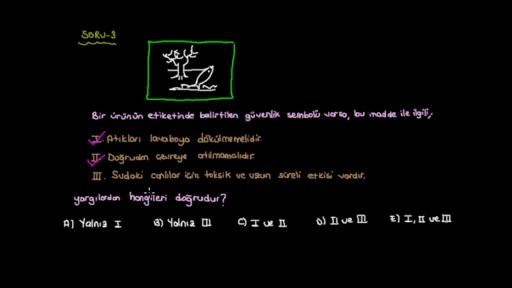 SORU-3
Bir ürünün etiketinde belirtilen güvenlik sembolü varsa, bu madde ile ilgili;
I. Atıkları lavaboya dökülmemelidir.
II. Doğrudan çevreye atılmamalıdır.
III. Sudaki canlılar için toksik ve uzun süreli etkisi vardır.
yargılardan hangileri doğrudur?
A) Yalnız I B) Yalnız III C) I ve II D) II ve III E) I, II ve III